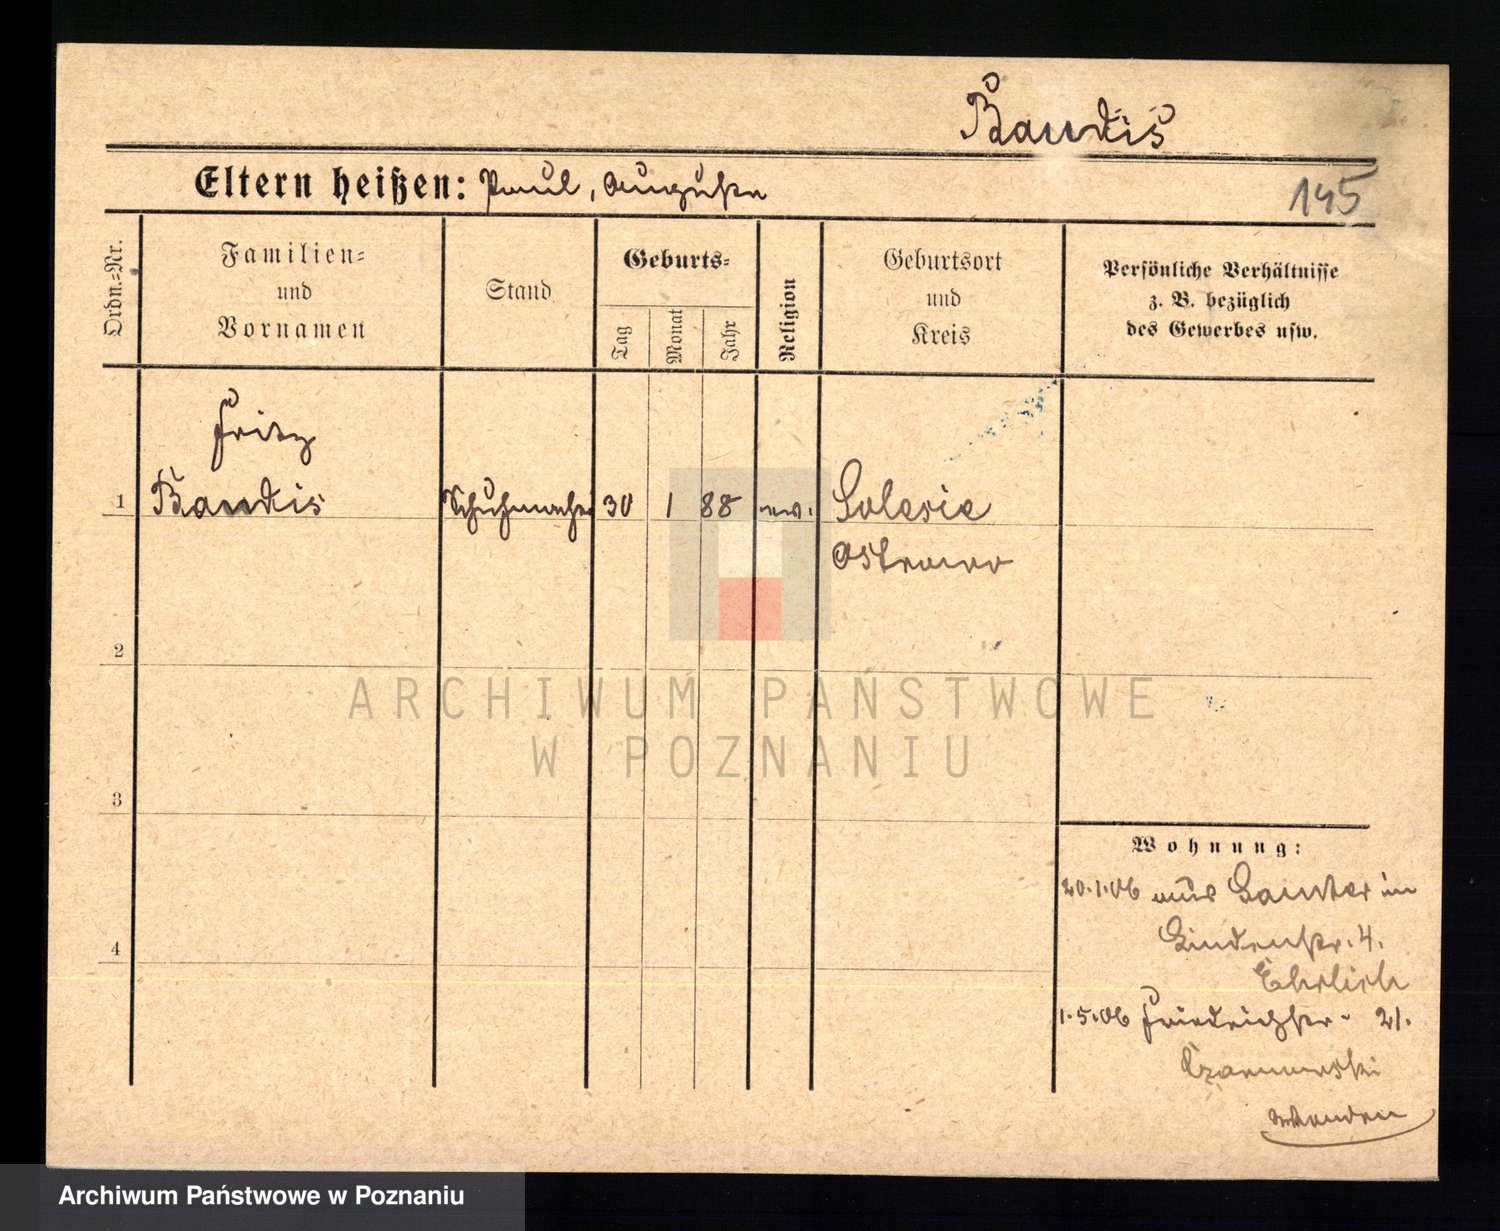 Baudis
Eltern heißen: Paul, Auguste
145
Ordn.-Nr.
Familien-
und
Vornamen
Stand
Geburts-
Tag
Monat
Jahr
Religion
Geburtsort
und
Kreis
Persönliche Verhältnisse
z. B. bezüglich
des Gewerbes usw.
Fritz
1 Baudis Schuhmacher 30 1 88 ev.
Ostrowo
2
3
4
Wohnung:
20.1.06 aus in
Lindenstr. 4.
Ehrlich
1.5.06 Friedrichstr. 21.
ARCHIWUM PAŃSTWOWE
W POZNANIU
Archiwum Państwowe w Poznaniu